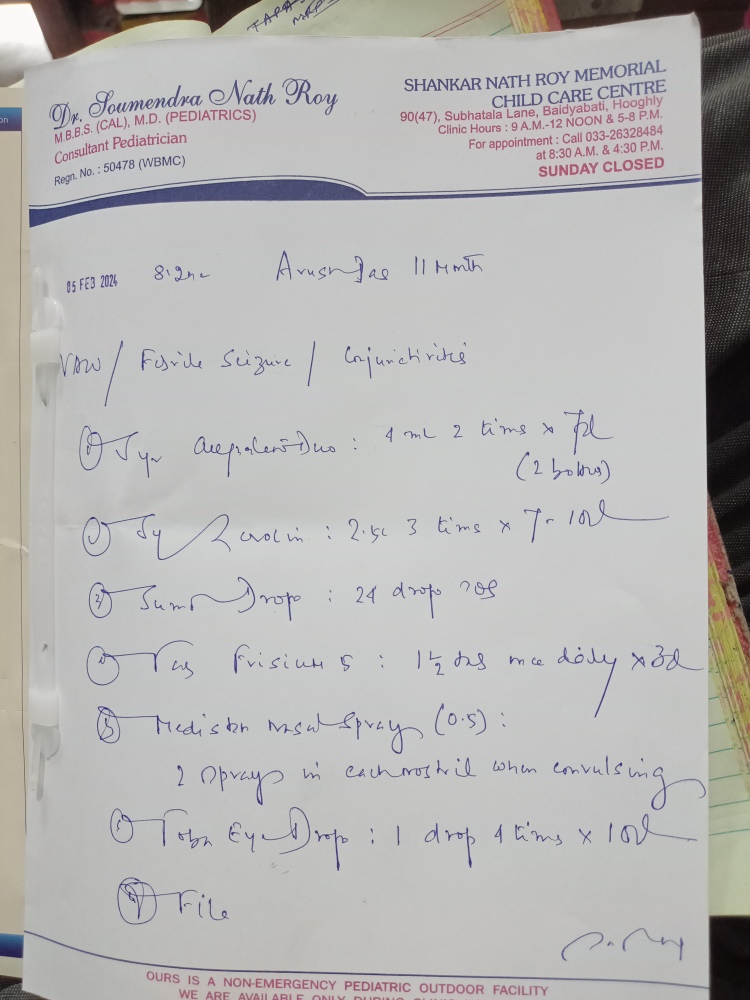 Dr. Soumendra Nath Roy
M.B.B.S. (CAL), M.D. (PEDIATRICS)
Consultant Pediatrician
Regn. No. : 50478 (WBMC)
SHANKAR NATH ROY MEMORIAL
CHILD CARE CENTRE
90(47), Subhatala Lane, Baidyabati, Hooghly
Clinic Hours : 9 A.M.-12 NOON & 5-8 P.M.
For appointment : Call 033-26328484
at 8:30 A.M. & 4:30 P.M.
SUNDAY CLOSED
05 FEB 2024 11 Month
/ Febrile Seizure / Conjunctivitis
Duo : 4 ml 2 times x 7d
(2 bottles)
Sy : 3 times x 7-10d
Drop : 24 drop
Frisium 5 : 1 1/2 once daily x 3d
Nasal Spray (0.5) :
2 Sprays in each nostril when convulsing
Toba Eye Drop : 1 drop 4 times x 10d
File
OURS IS A NON-EMERGENCY PEDIATRIC OUTDOOR FACILITY
WE ARE AVAILABLE ONLY DURING